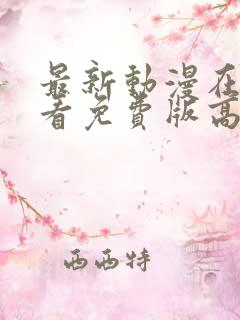 最新動漫在
看免費版高
西西特